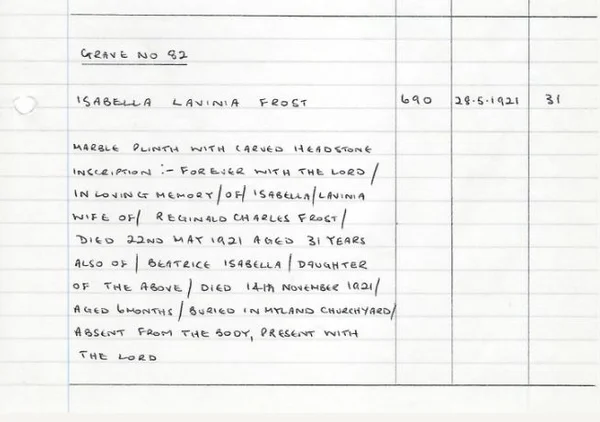 GRAVE NO 82
ISABELLA LAVINIA FROST 690 28.5.1921 31
MARBLE PLINTH WITH CARVED HEADSTONE
INSCRIPTION :- FOREVER WITH THE LORD/
IN LOVING MEMORY/OF/ISABELLA/LAVINIA
WIFE OF/ REGINALD CHARLES FROST/
DIED 22ND MAY 1921 AGED 31 YEARS
ALSO OF/ BEATRICE ISABELLA/DAUGHTER
OF THE ABOVE/ DIED 14TH NOVEMBER 1921/
AGED 6MONTHS/BURIED IN MYLAND CHURCHYARD/
ABSENT FROM THE BODY, PRESENT WITH
THE LORD